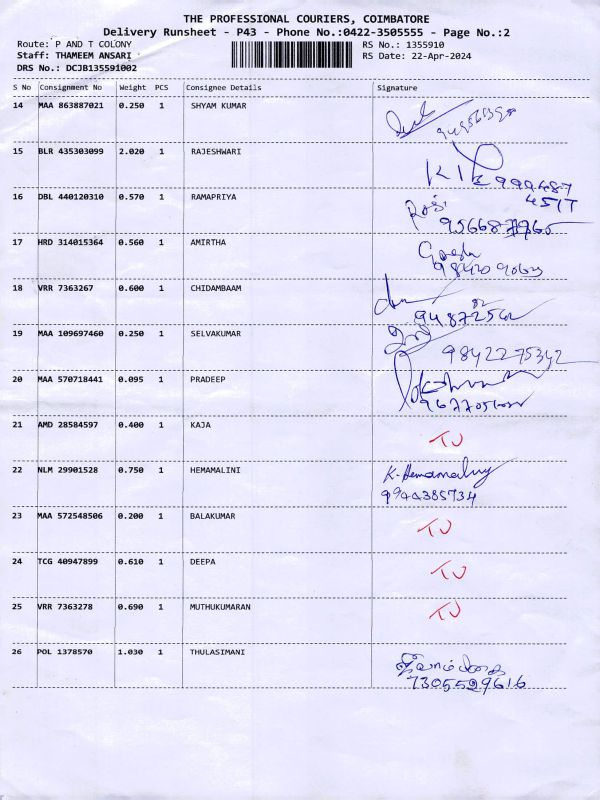 THE PROFESSIONAL COURIERS, COIMBATORE
Delivery Runsheet - P43 - Phone No.:0422-3505555 - Page No.:2
Route: P AND T COLONY RS No.: 1355910
Staff: THAMEEM ANSARI RS Date: 22-Apr-2024
DRS No.: DCJB135591002
S No Consignment No Weight PCS Consignee Details Signature
14 MAA 863887021 0.250 1 SHYAM KUMAR
15 BLR 435303099 2.020 1 RAJESHWARI
16 DBL 440120310 0.570 1 RAMAPRIYA
17 HRD 314015364 0.560 1 AMIRTHA
18 VRR 7363267 0.600 1 CHIDAMBAAM
19 MAA 109697460 0.250 1 SELVAKUMAR
9842275342
20 MAA 570718441 0.095 1 PRADEEP
21 AMD 28584597 0.400 1 KAJA
22 NLM 29901528 0.750 1 HEMAMALINI
23 MAA 572548506 0.200 1 BALAKUMAR
24 TCG 40947899 0.610 1 DEEPA
25 VRR 7363278 0.690 1 MUTHUKUMARAN
26 POL 1378570 1.030 1 THULASIMANI
7305529616